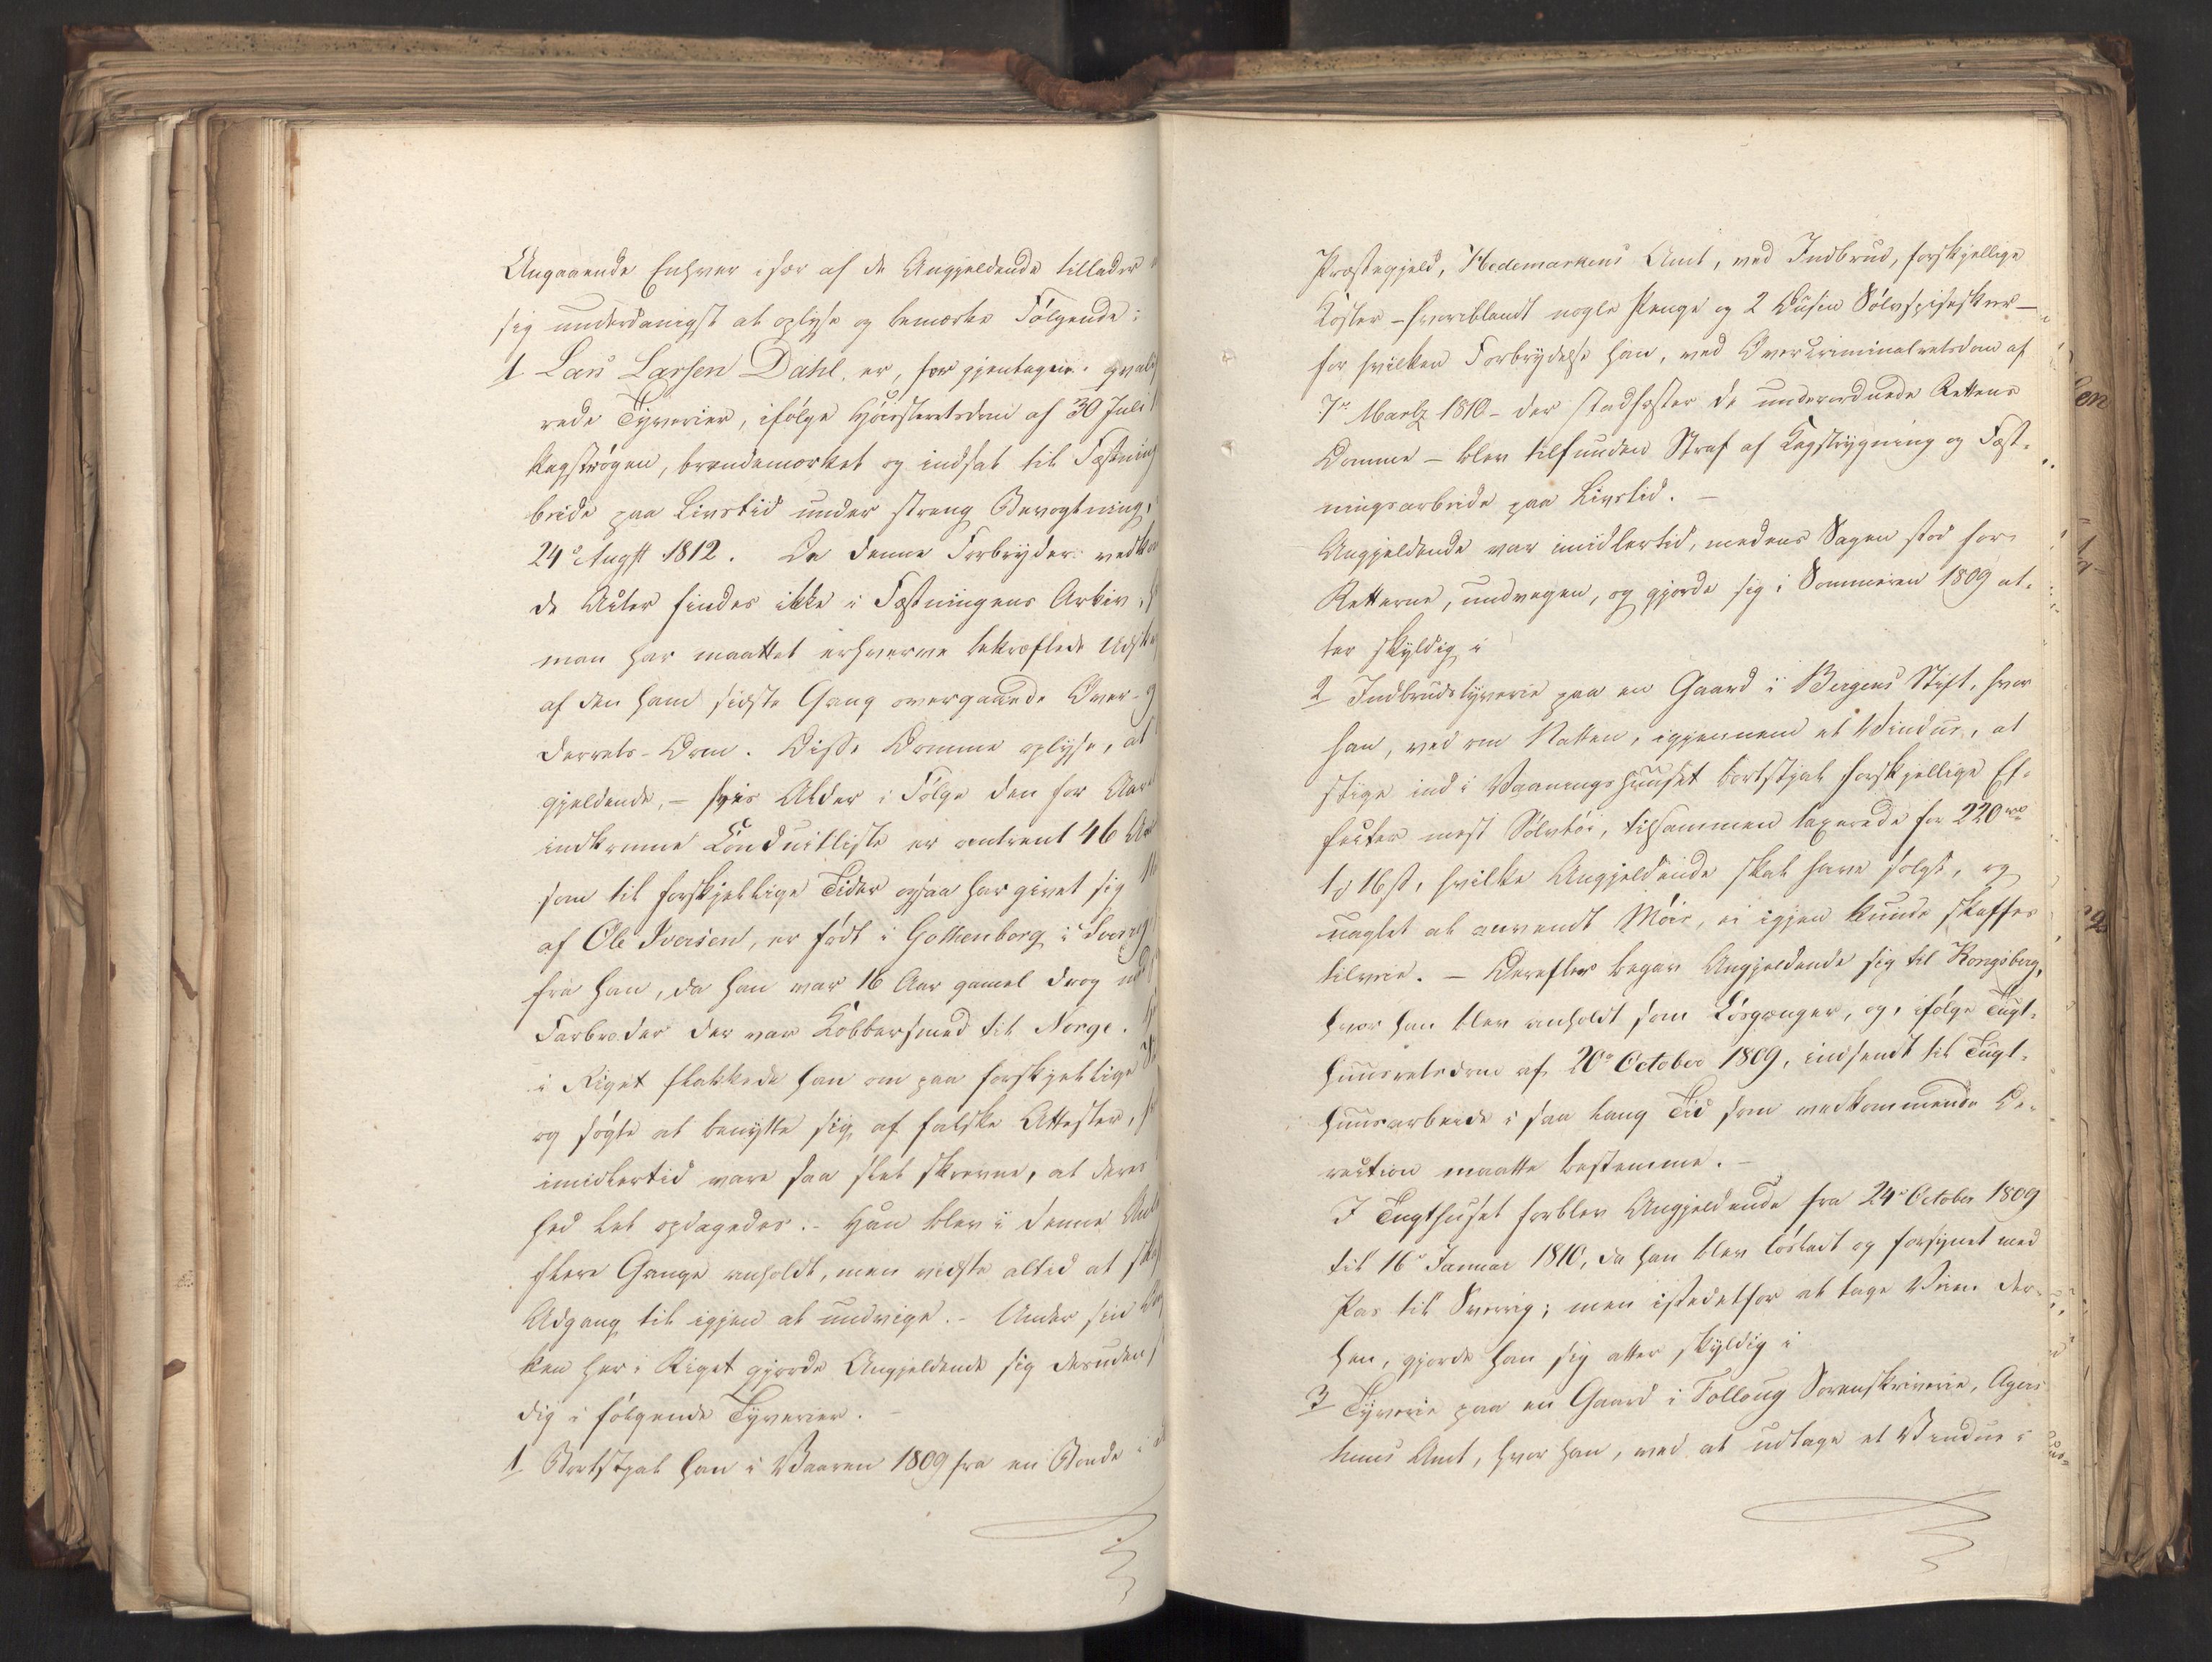 Angaaende Enhver især af de Angjeldende tillader
sig underdanigst at oplyse og bemærke Følgende:
1 Lars Larsen Dahl, er, for gjentagne qvalif
rede Tyverier, ifølge Høiesteretsdom af 30 Juli
kagstrøgen, brændemærket og indsat til Fæstning
beide paa Livstid under streng Bevogtning,
24de Augst 1812. Da denne Forbryder vedko
de Akter findes ikke i Fæstningens Arkiv,
man har maattet erhverve bekræftede Udskr
af den ham sidste Gang overgaaede Over- og
derrets-Dom. Disse Domme oplyse, at
gjeldende, – hvis Alder i Følge den for Aar
indkomne Conduitliste er omtrent 46 Aar
som til forskjellige Tider ogsaa har givet sig
af Ole Iversen, er født i Gothenborg i Sverrig
fra han, da han var 16 Aar gamel drog med
Farbroder der var Kobbersmed til Norge.
i Riget flakkede han om paa forskjellige
og søgte at benytte sig af falske Attester,
imidlertid vare saa slet skrevne, at deres
hed let opdagedes. – Han blev i denne
flere Gange anholdt, men vidste altid at
Adgang til igjen at undvige. – Under sin
ken her i Riget gjorde Angjeldende sig desuden
dig i følgende Tyverier. –
1 Bortstjal han i Vaaren 1809 fra en Bonde i
Præstegjeld, Hedemarkens Amt, ved Indbrud, forskjellige
Koster – hvoriblandt nogle Penge og 2 Dusin Sølvspiseskeer –
for hvilken Forbrydelse han, ved OverCriminalretsdom af
7de Martz 1810 – der stadfæster de underordnede Rettens
Domme – blev tilfunden Straf af Kagstrygning og Fæst-
ningsarbeide paa Livstid. –
Angjeldende var imidlertid, medens Sagen stod for
Retterne, undvegen, og gjorde sig i Sommeren 1809 at-
ter skyldig i
2 Indbrudstyverie paa en Gaard i Bergens Stift, hvor
han, ved om Natten, igjennem et Vindue, at
stige ind i Vaaningshuuset bortstjal forskjellige Ef-
fecter mest Sølvtøi, tilsammen taxerede for 220 rd
1 16 s, hvilke Angjeldende skal have solgt, og
uagtet al anvendt Møie, ei igjen kunde skaffes
tilveie. – Derefter begav Angjeldende sig til Kongsberg,
hvor han blev anholdt som Løsgænger, og, ifølge Tugt-
huusretsdom af 20de October 1809, indsendt til Tugt-
huusarbeide i saa lang Tid som vedkommende Di-
rection maatte bestemme. –
I Tugthuset forblev Angjeldende fra 24de October 1809
til 16de Januar 1810, da han blev løsladt og forsynet med
Pas til Sverrig; men istedetfor at tage Veien der-
hen, gjorde han sig atter skyldig i
3 Tyverie paa en Gaard i Folloug Sorenskriverie, Agers
huus Amt, hvor han, ved at udtage et Vindue i